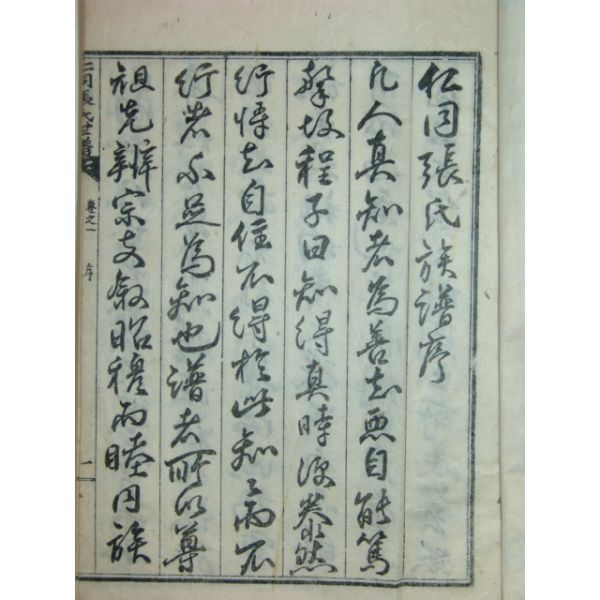 仁同張氏族譜序
凡人真知者為善去惡自能篤
摯故程子曰知得真時便泰然
行將去自住不得於此知之而不
行者不足為知也譜者所以尊
祖先辨宗支敘昭穆而睦同族
仁同張氏世譜
卷之一
序
一